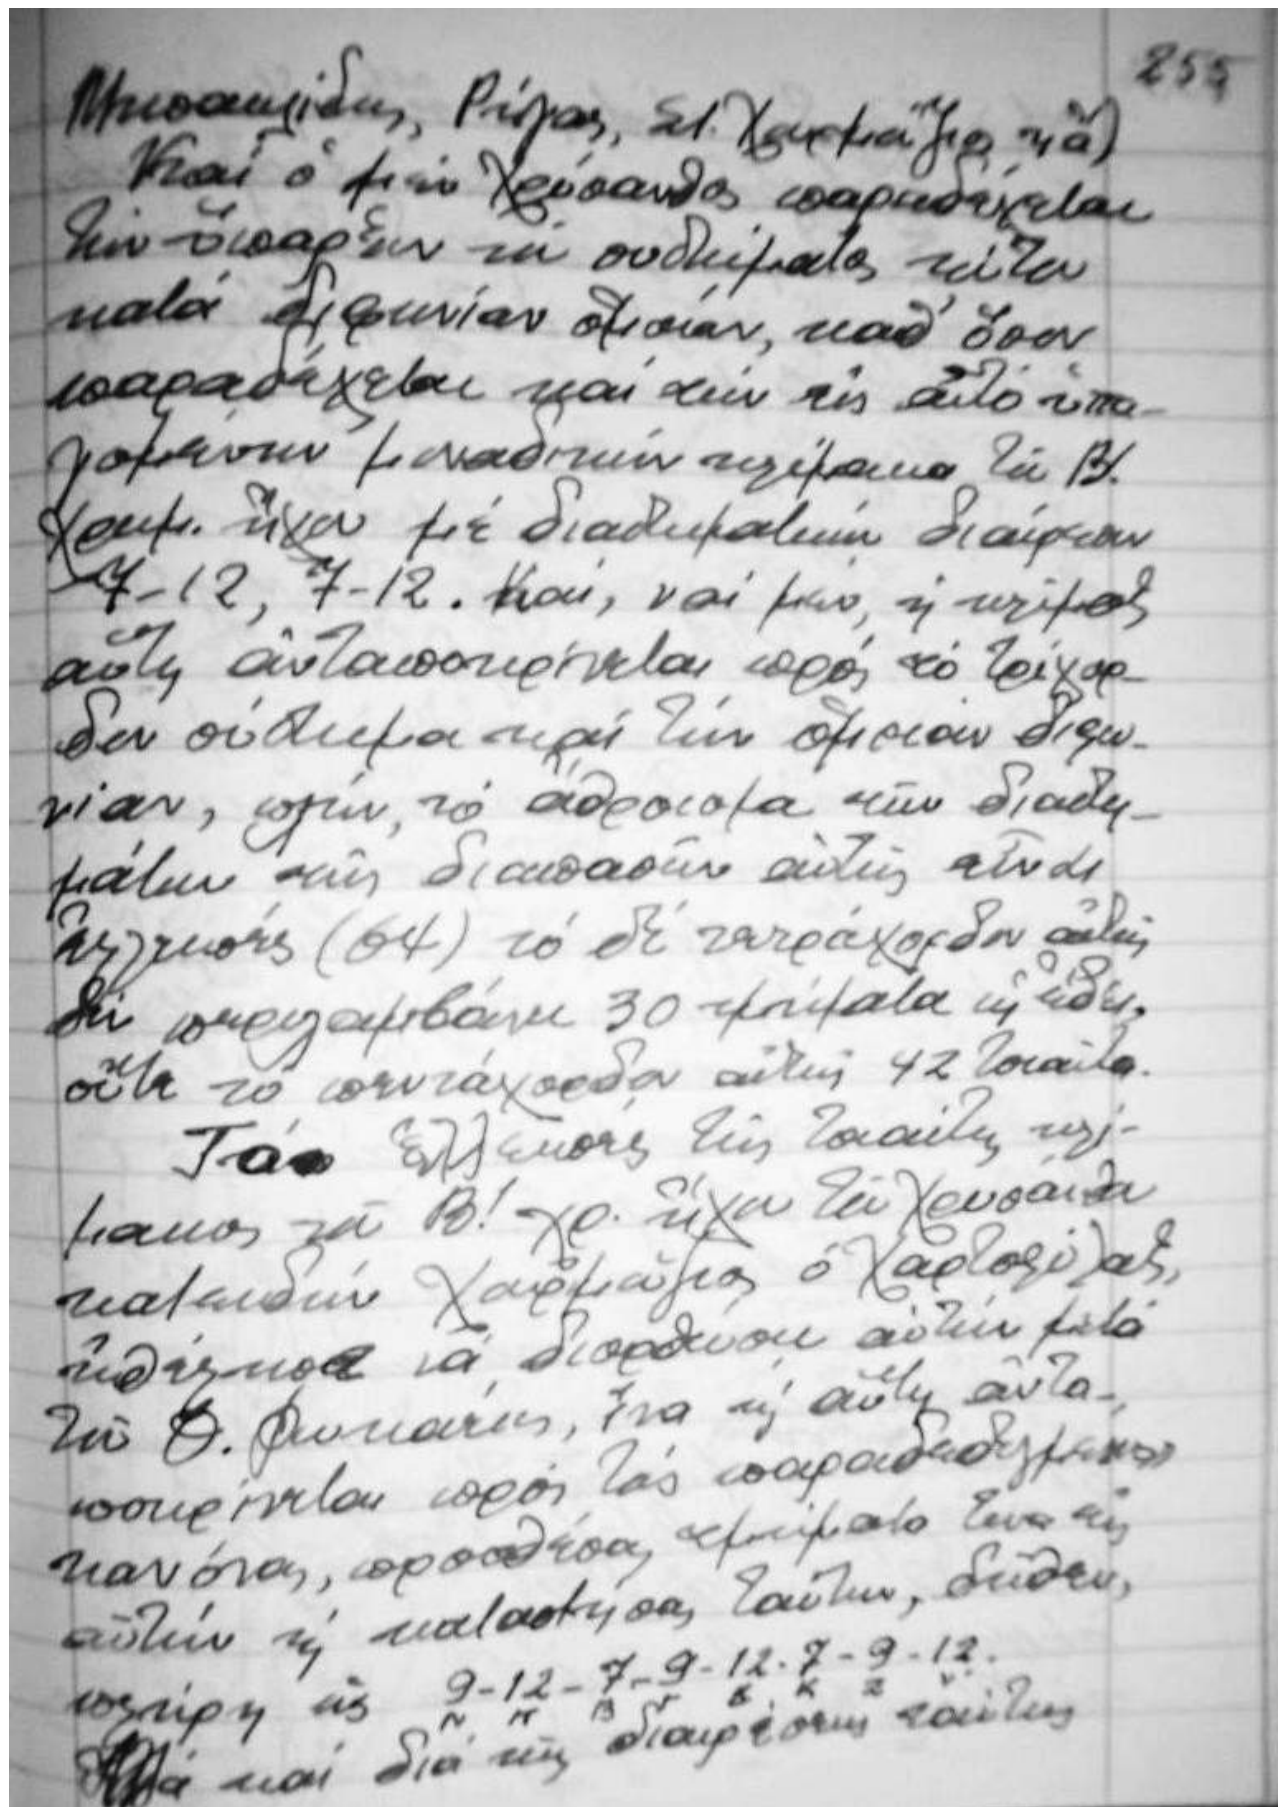 255
Μισαηλίδης, Ρήγας, Στ. Χουρμούζιος κἄ)
Καί ὁ μέν Χρύσανθος παραδέχεται
τήν ὕπαρξιν τοῦ συστήματος τούτου
κατά διφωνίαν ὁμοίαν, καθ' ὅσον
παραδέχεται καί τήν εἰς αὐτό ὑπα-
γομένην μοναδικήν κλίμακα τοῦ Β!
χρωμ. ἤχου μέ διαστηματικήν διαίρεσιν
7-12, 7-12. Καί, ναί μέν, ἡ κλίμαξ
αὕτη ἀνταποκρίνεται πρός τό τρίχορ-
δον σύστημα καί τήν ὁμοίαν διφω-
νίαν, πλήν, τό ἄθροισμα τῶν διαστη-
μάτων τῆς διαπασῶν αὐτῆς εἶναι
ἐλλιπές (64) τό δέ τετράχορδον αὐτῆς
δέν περιλαμβάνει 30 τμήματα ὡς ἔδει,
οὔτε τό πεντάχορδον αὐτῆς 42 τοιαῦτα.
Τό ἐλλιπές τῆς τοιαύτης κλί-
μακος τοῦ Β! χρ. ἤχου τοῦ Χρυσάνθου
κατειδών Χουρμούζιος ὁ Χαρτοφύλαξ,
ἠθέλησε νά διορθώσῃ αὐτήν μετά
τοῦ Θ. Φωκαέως, ἵνα ἡ αὕτη ἀντα-
ποκρίνεται πρός τάς παραδεδεγμένους
κανόνας, προσθέσας τμήματα τινα εἰς
αὐτήν καί καταστήσας ταύτην, δῆθεν,
πλήρη ὡς 9-12-7-9-12-7-9-12.
Ν Π Β Γ Δ Κ Ζ Ν
Ἀλλά καί διά τῆς διαιρέσεως ταύτης